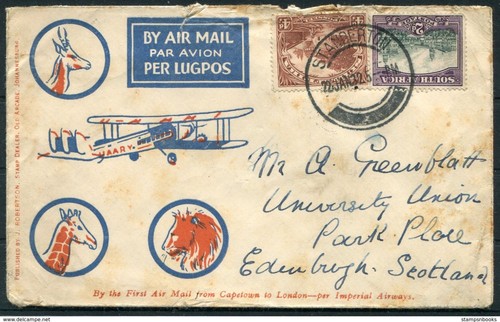 BY AIR MAIL
PAR AVION
PER LUGPOS
STANDERTON
SOUTH AFRICA
Mr A. Greenblatt
University Union
Park Place
Edinburgh. Scotland
By the First Air Mail from Capetown to London—per Imperial Airways.
PUBLISHED BY J. ROBERTSON, STAMP DEALER, OLD ARCADE, JOHANNESBURG
stampsnbooks